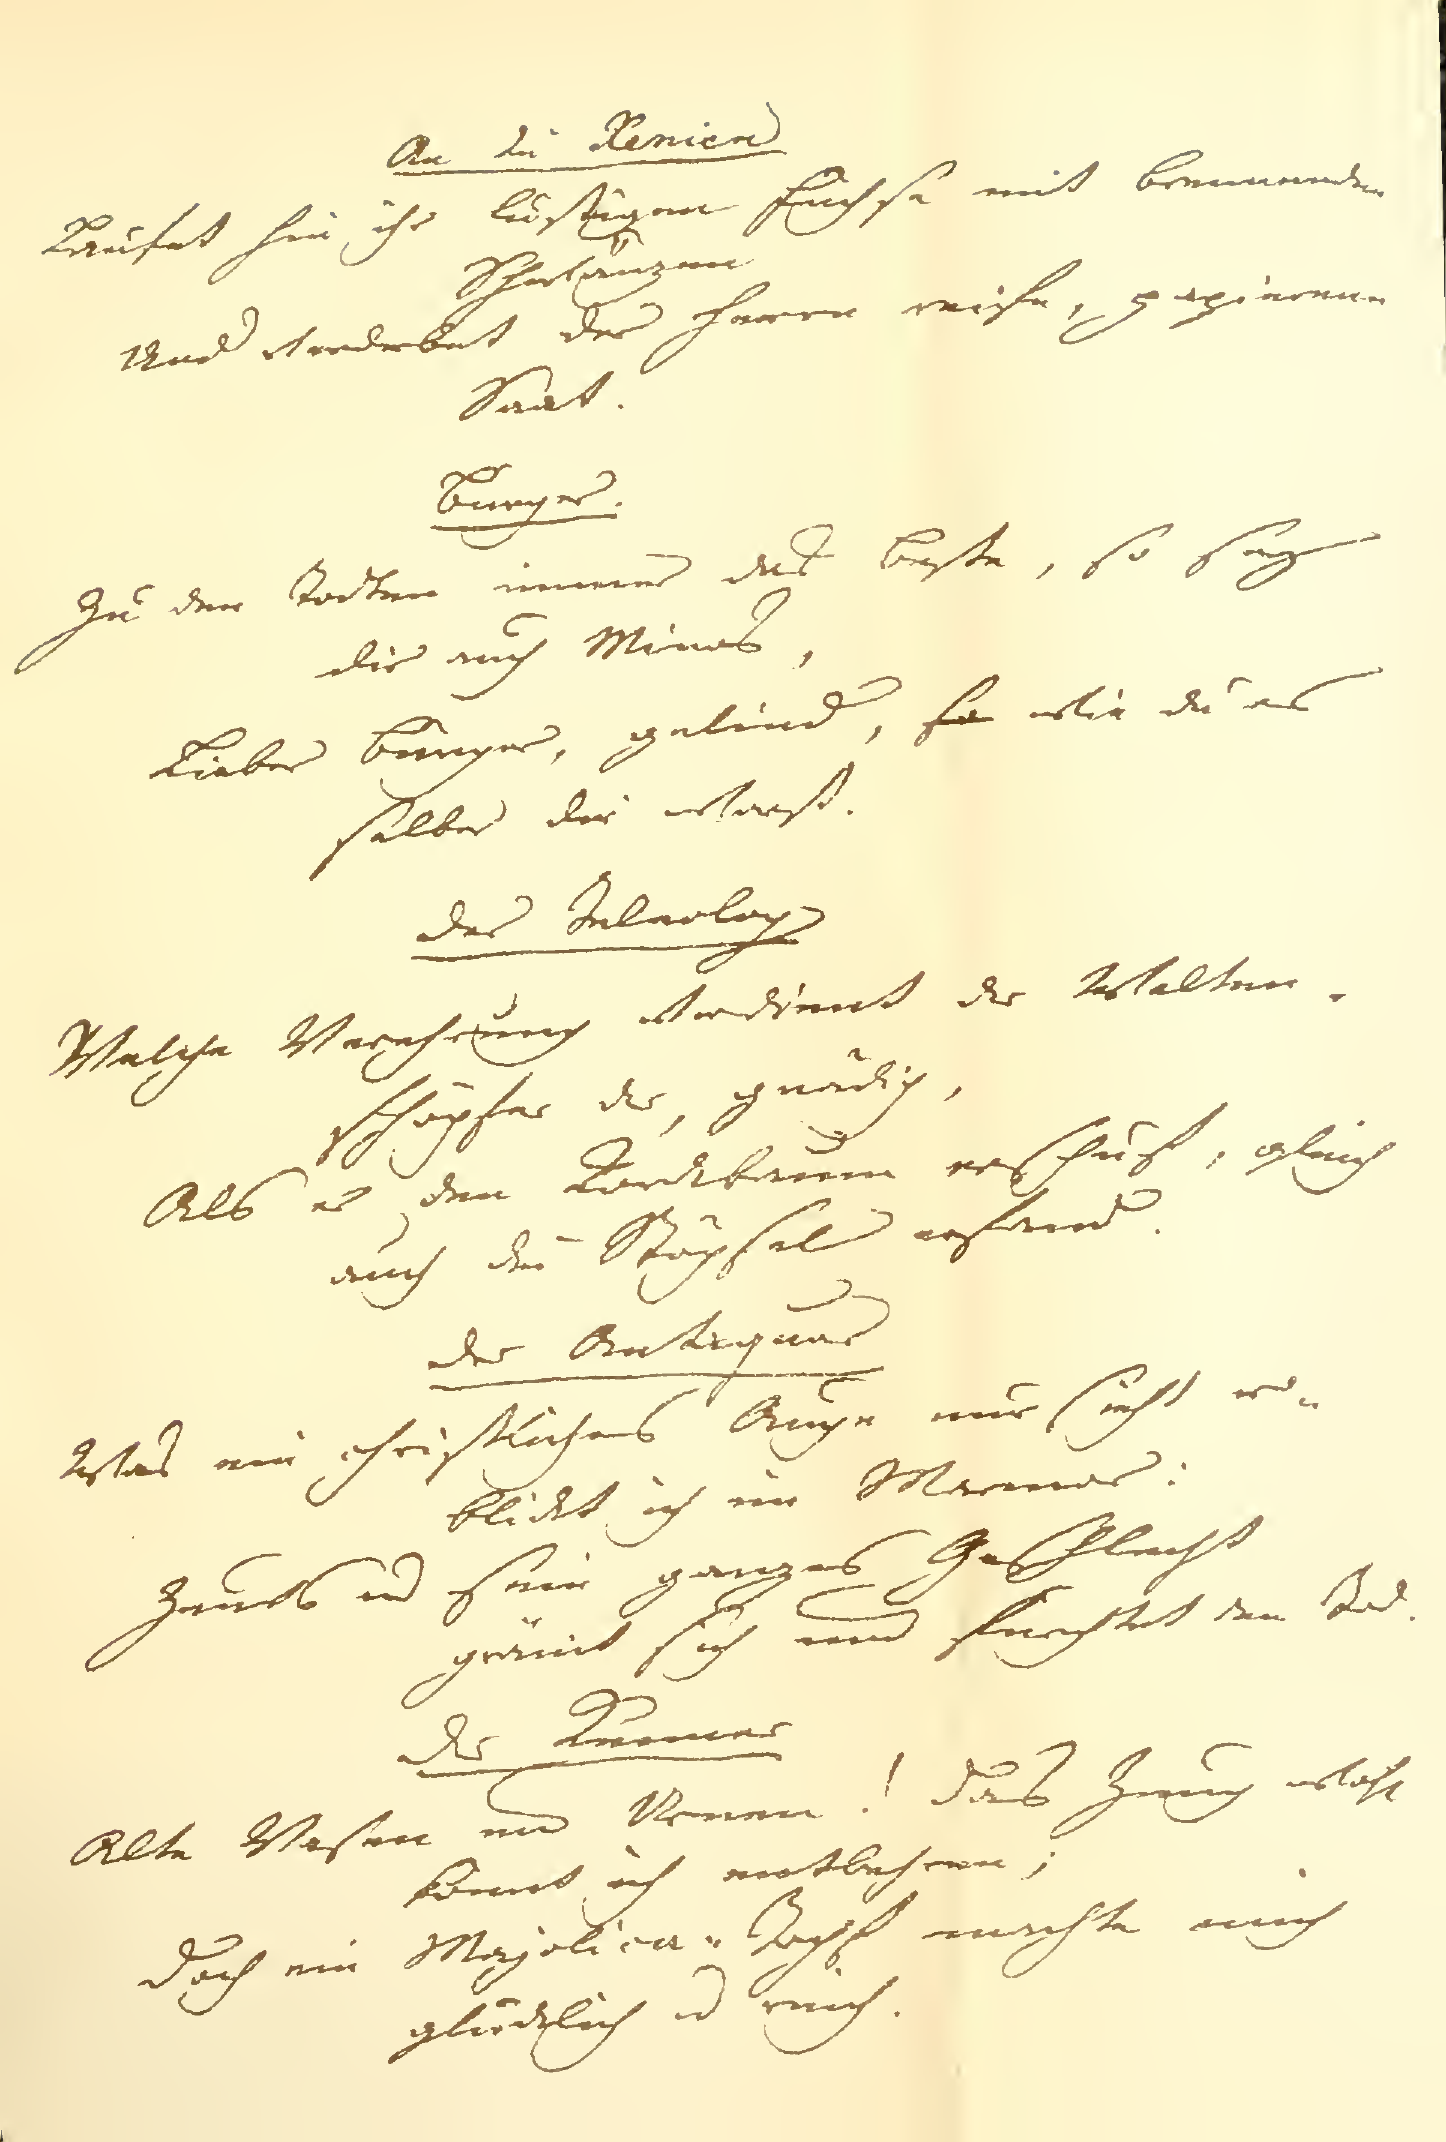 An die Xenien
Laufet hin ihr lustigen Füchse mit brennenden
Schwänzen
Und verderbet der Herren reife, papierene
Saat.
Bürger.
Zu den Todten immer das Beste, so sey
dir auch Minos,
Lieber Bürger, gelind, so wie du es
selber dir warst.
Der Teleolog
Welche Verehrung verdient der Welten-
schöpfer der, gnädig,
Als er den Korkbaum erschuf, gleich
auch die Stöpsel erfand.
Der Antiquar
Was ein christliches Auge nur sieht er-
blickt ich im Marmor:
Zeus u sein ganzes Geschlecht
grämt sich und fürchtet den Tod.
Der Kenner
Alte Vasen und Urnen! Das Zeug wohl
könnt ich entbehren;
Doch ein Majolica-Topf machte mich
glücklich u reich.